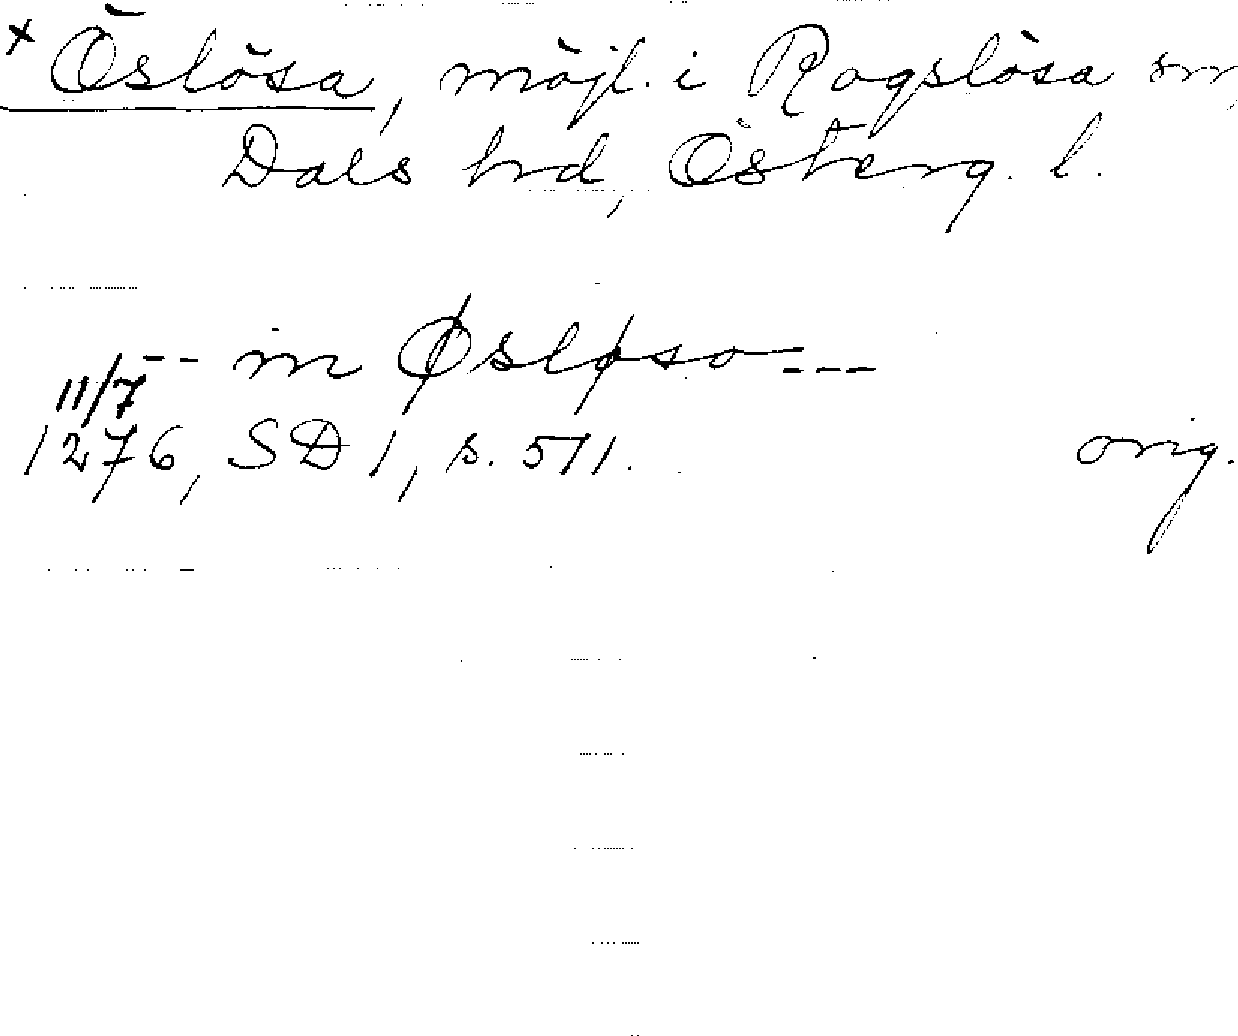 x Öslösa, möjl. i Rogslösa sn,
Dals hd, Österg. l.
-- in Øsløso ---
11/7
1276, SD 1, s. 511. orig.